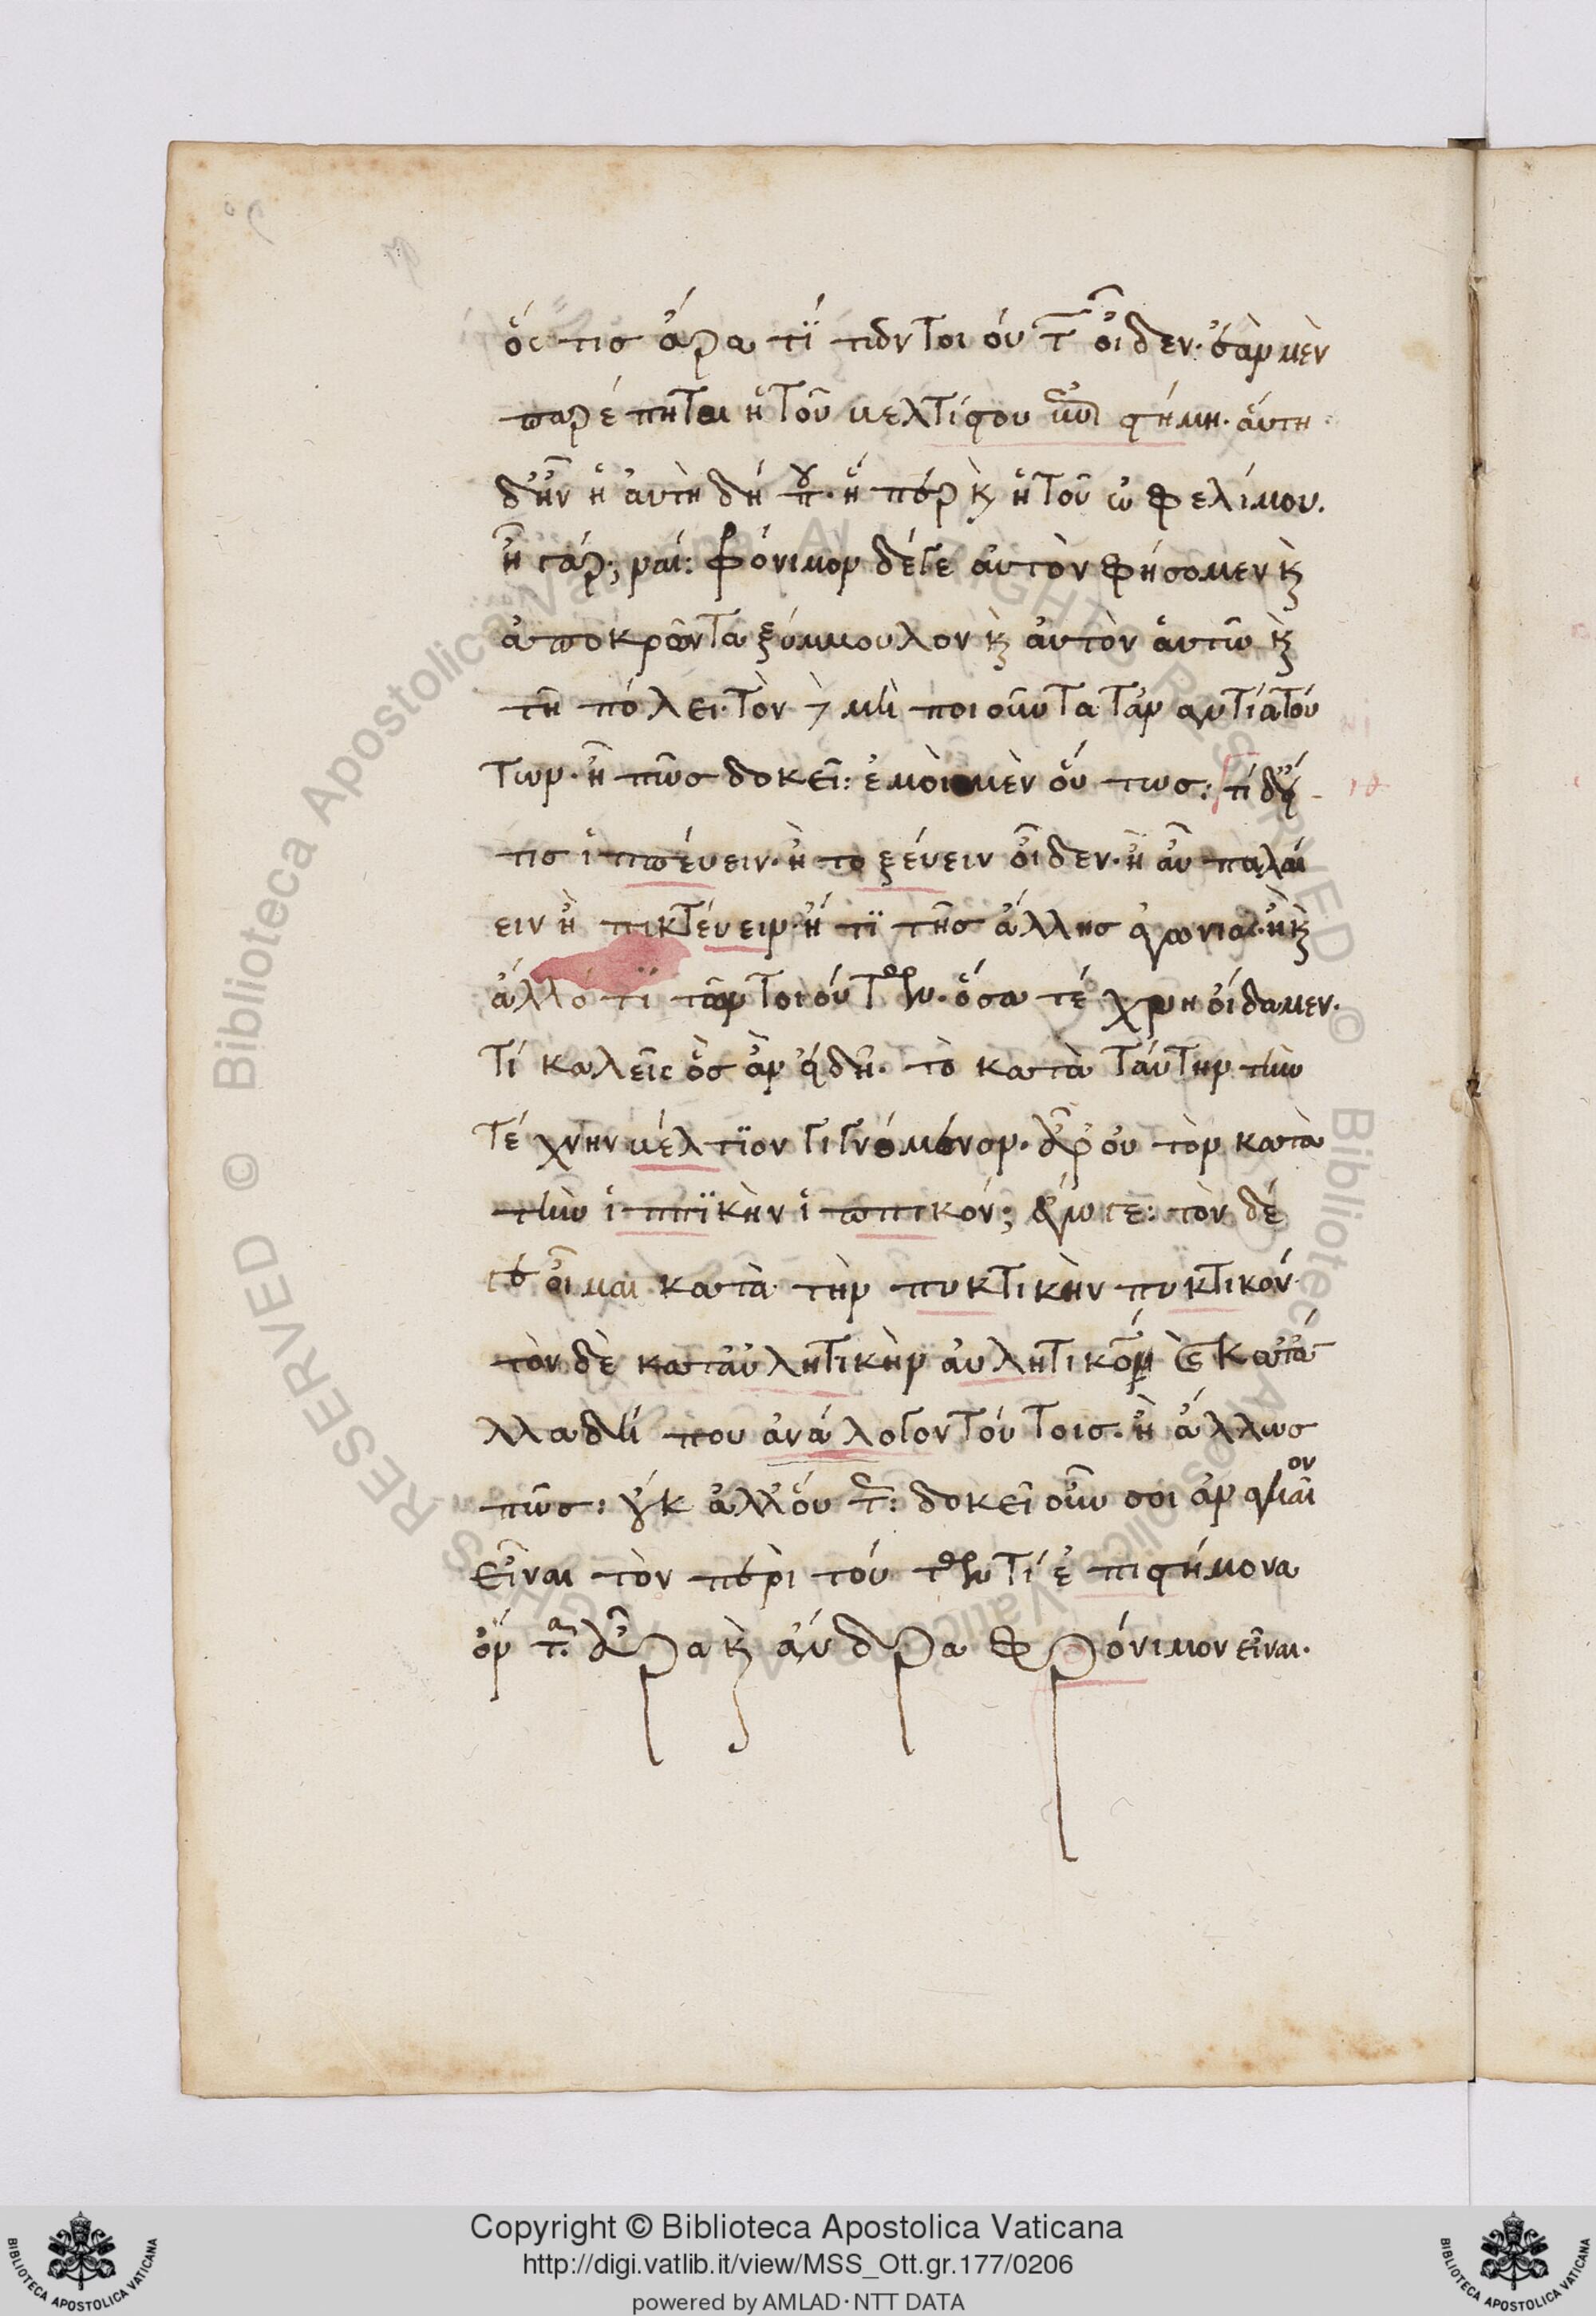 ὅς τις ἄρα τὶ τῶν τοιούτων οἶδεν· ἐὰν μὲν
παρέπηται ἡ τοῦ βελτίστου ἐπιστήμη· αὕτη
δ' ἦν ἡ αὐτὴ δή που· ἥπερ καὶ ἡ τοῦ ὠφελίμου.
ἦ γάρ; ναί: φρόνιμον δέ γε αὐτὸν φήσομεν καὶ
ἀποχρῶντα ξύμβουλον καὶ αὐτὸν αὑτῶ καὶ
τῆ πόλει· τὸν δὲ μὴ ποιοῦντα τἀναντία τού
των· ἢ πῶς δοκεῖ: ἐμοὶ μὲν οὕτως: τί δ' εἴ
τις ἱππεύειν· ἢ τοξεύειν οἶδεν· ἢ αὖ παλαί
ειν ἢ πυκτεύειν· ἤ τι τῆς ἄλλης ἀγωνίας· ἢ καὶ
ἄλλό τι τῶν τοιούτων· ὅσα τέχνη οἴδαμεν.
τί καλεῖς ὃς ἂν εἰδῆ· τὸ κατὰ ταύτην τὴν
τέχνην βέλτιον γιγνόμενον· ἆρ' οὐ τὸν κατὰ
τὴν ἱππικὴν ἱππικόν; ἔγωγε: τὸν δέ
γε οἶμαι κατὰ τὴν πυκτικὴν πυκτικόν·
τὸν δὲ κατ' αὐλητικὴν αὐλητικόν· καὶ τἆ
λλα δή που ἀνάλογον τούτοις· ἢ ἄλλως
πῶς: οὐκ ἀλλ' οὕτως: δοκεῖ οὖν σοι ἀναγκαῖον
εἶναι τὸν περὶ τούτων τί ἐπιστήμονα
ὄντα· ἆρα καὶ ἄνδρα φρόνιμον εἶναι.
Copyright © Biblioteca Apostolica Vaticana
http://digi.vatlib.it/view/MSS_Ott.gr.177/0206
powered by AMLAD·NTT DATA